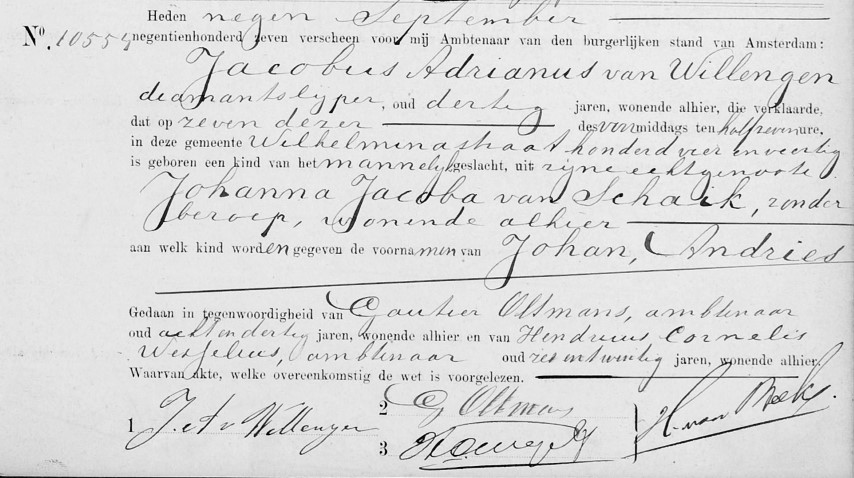 Heden negen September
No. 10554 negentienhonderd zeven verscheen voor mij Ambtenaar van den burgerlijken stand van Amsterdam:
Jacobus Adrianus van Willengen
diamantslyper, oud dertig jaren, wonende alhier, die verklaarde,
dat op zeven dezer des voormiddags ten half zeven ure,
in deze gemeente Wilhelminastraat honderd vier en veertig
is geboren een kind van het mannelijk geslacht, uit zijne echtgenoote
Johanna Jacoba van Schaik, zonder
beroep, wonende alhier
aan welk kind worden gegeven de voornamen van Johan, Andries
Gedaan in tegenwoordigheid van Gautier Oltmans, ambtenaar
oud achtendertig jaren, wonende alhier en van Hendricus Cornelis
Wesselius, ambtenaar oud zesentwintig jaren, wonende alhier.
Waarvan akte, welke overeenkomstig de wet is voorgelezen.
1 J. A. v Willengen
2 G Oltmans
3
H. van Beek